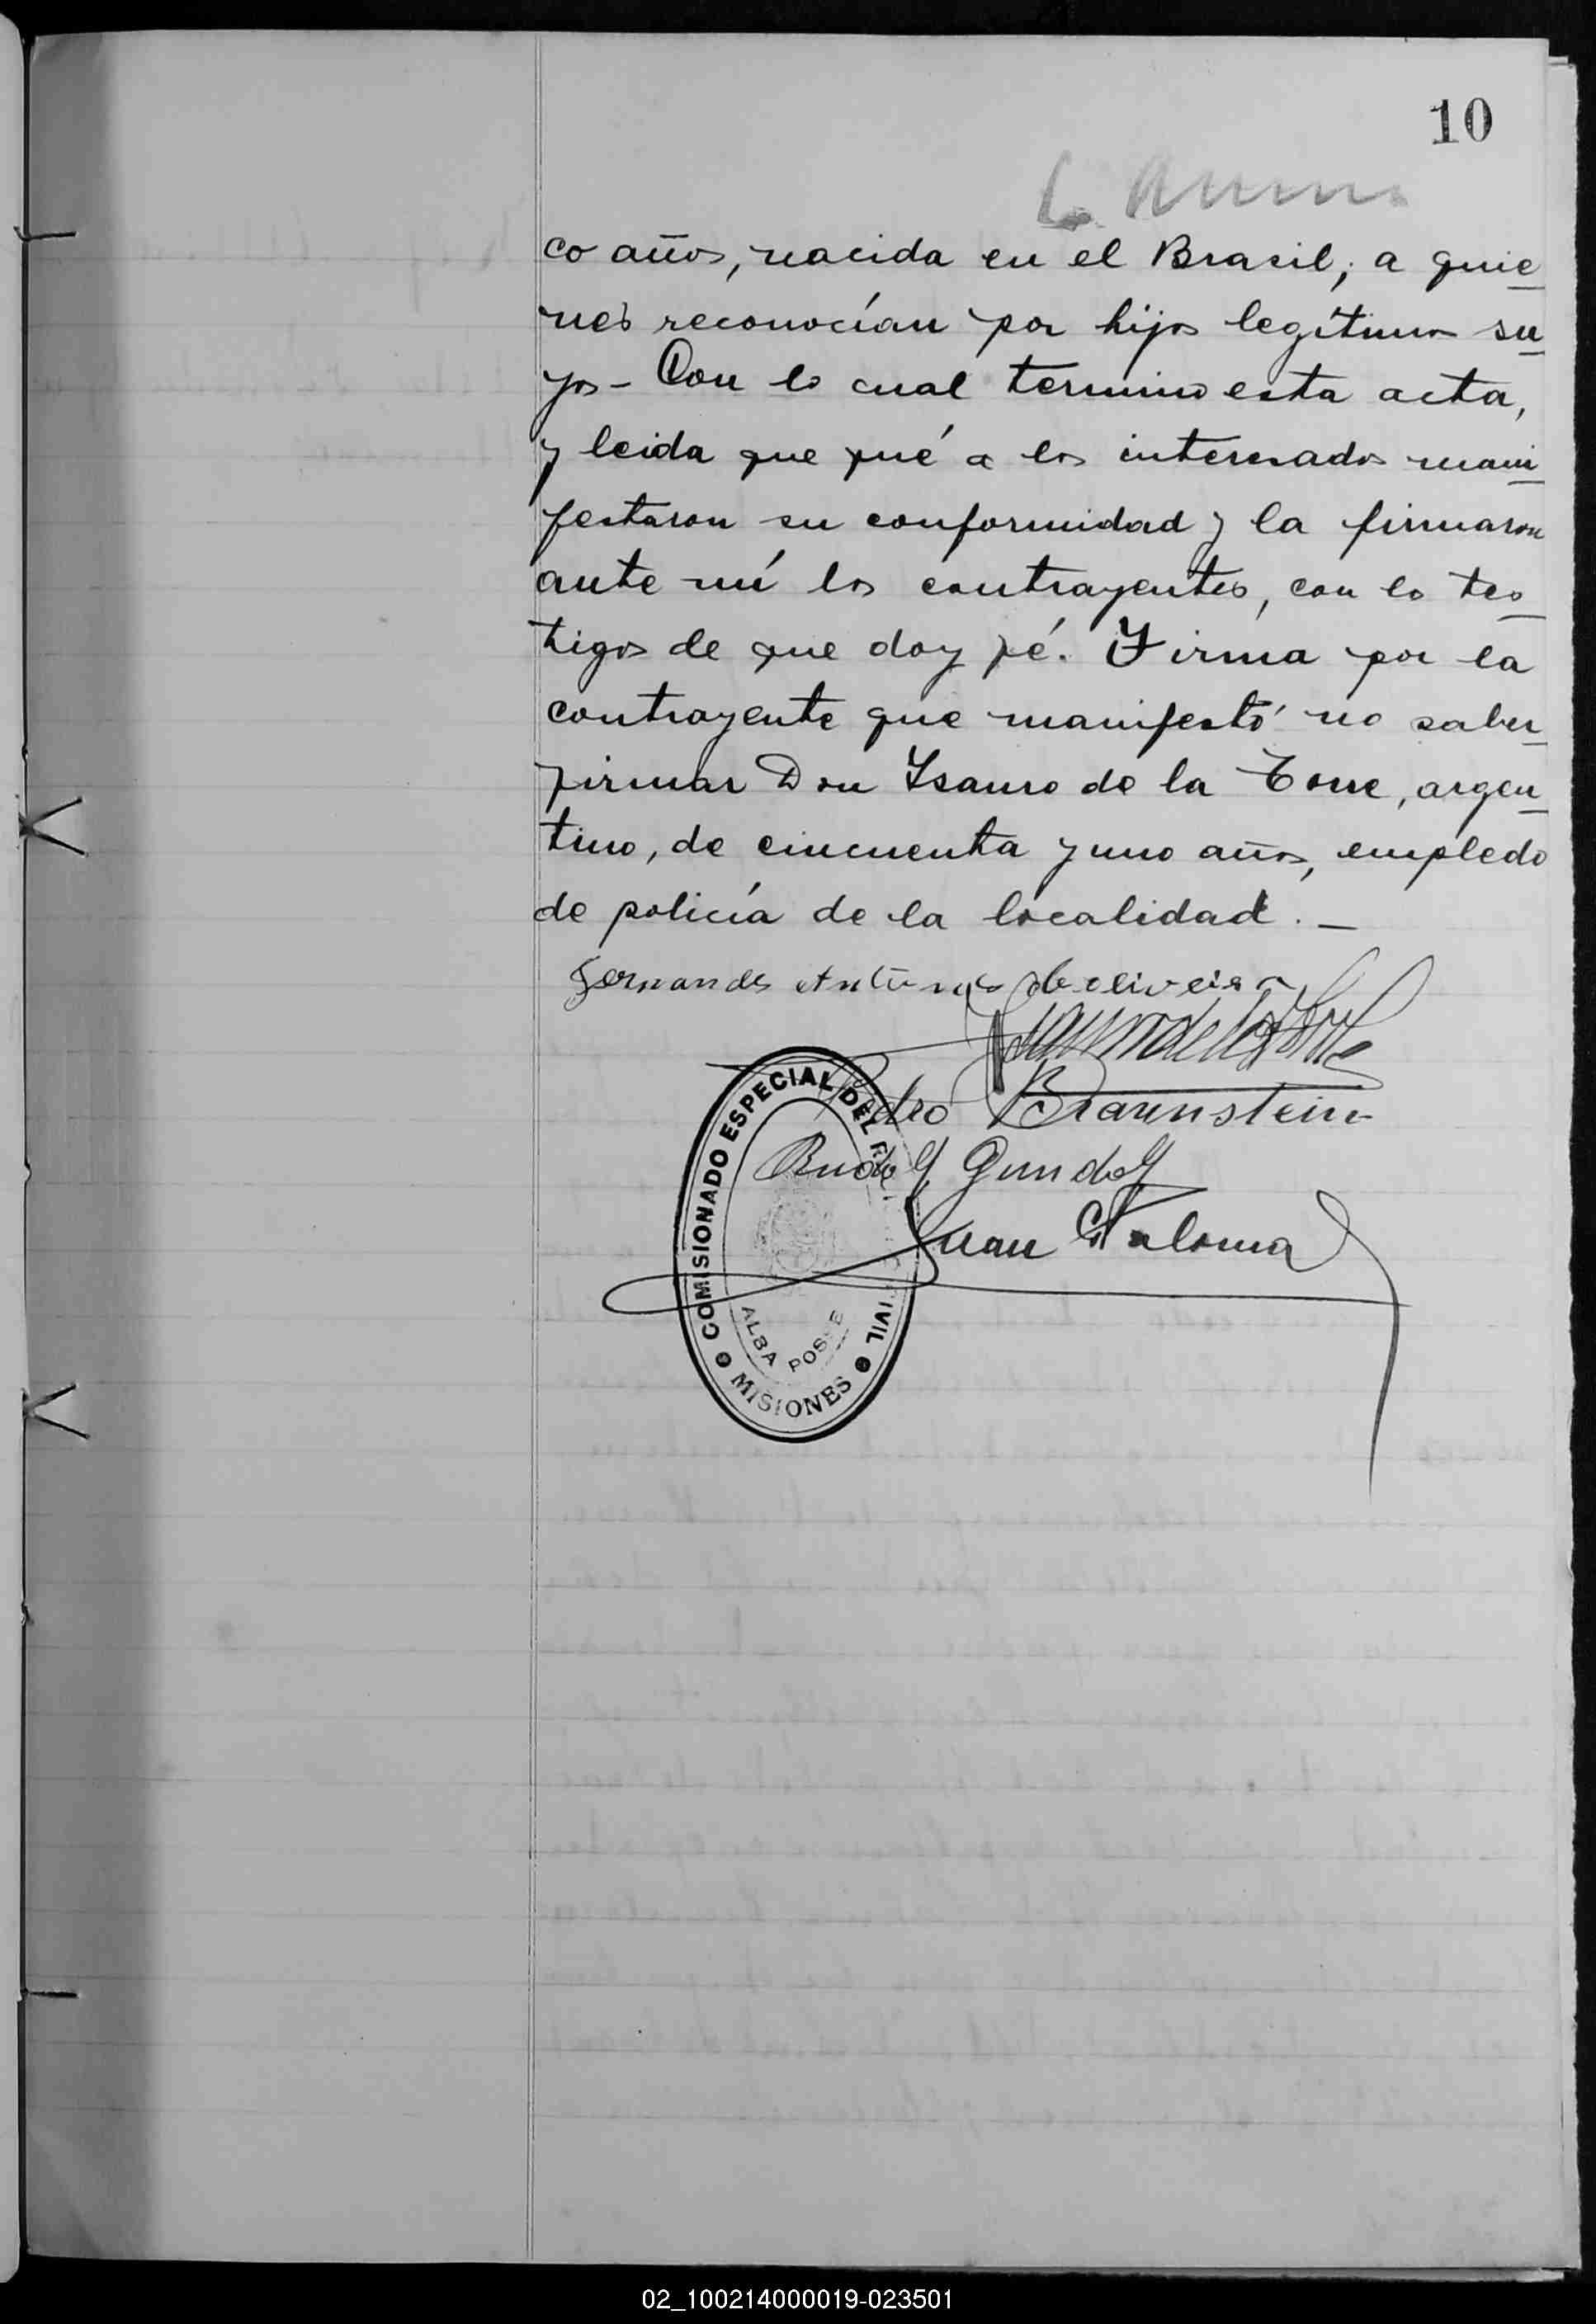 10
co años, nacida en el Brasil; a quie
nes reconocían por hijos legítimos su
yos - Con lo cual termino esta acta,
y leida que fué a los interesados mani
festaron su conformidad y la firmaron
ante mí los contrayentes, con lo tes
tigos de que doy fé. Firma por la
contrayente que manifestó no saber
firmar Don Ysauro de la Torre, argen
tino, de cincuenta y uno años, empledo
de policía de la localidad. —
Fernandes Antunes de oliveira
Ysauro de la Torre
Pedro Braunstein
Rudolf Gundolf
Juan Paloma
COMISIONADO ESPECIAL DEL R CIVIL
ALBA POSSE
MISIONES
02_100214000019-023501